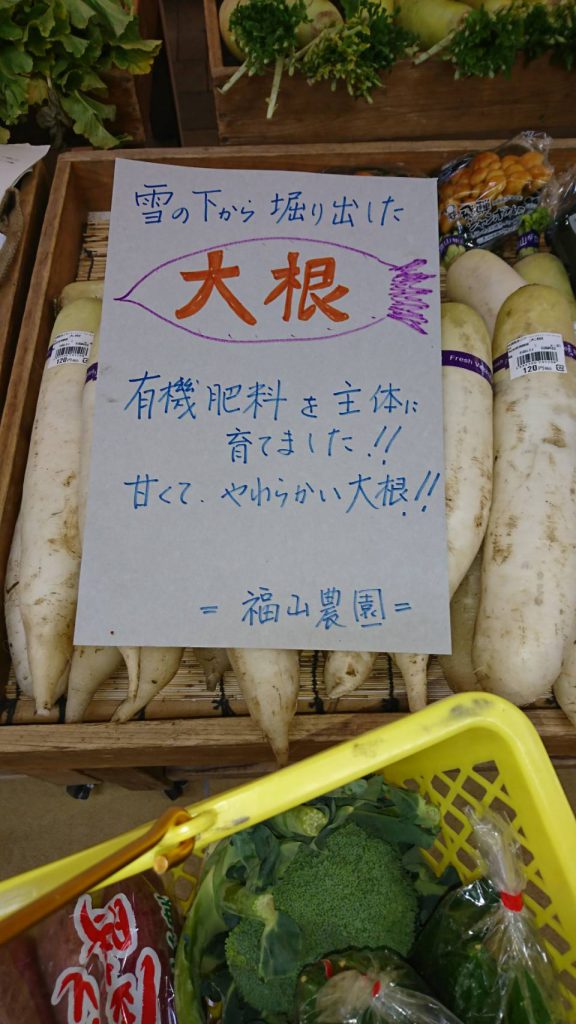 雪の下から掘り出した
大根
有機肥料を主体に
育てました!!
甘くて、やわらかい大根!!
=福山農園=
120円
120円
Fresh Ve